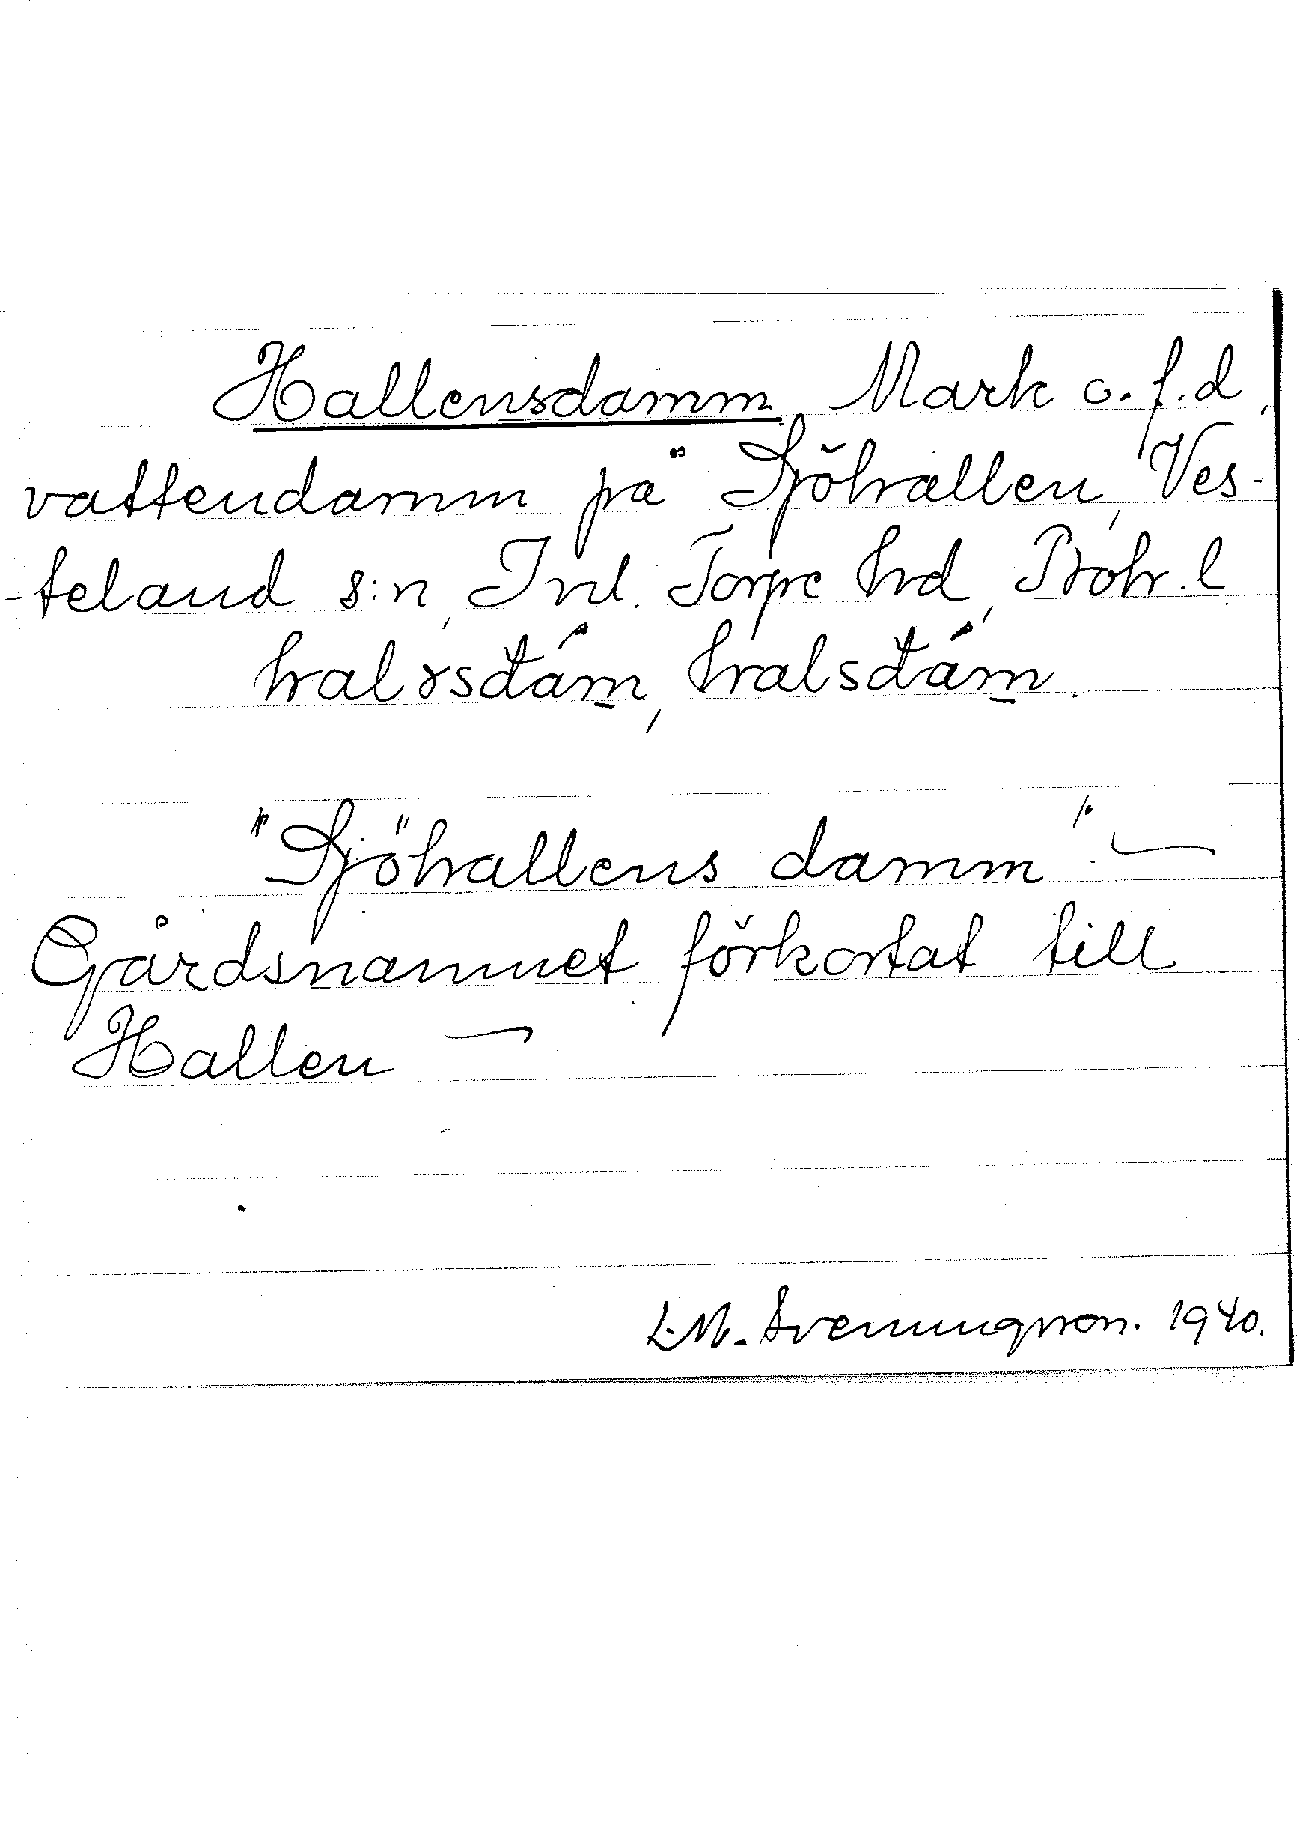 Hallensdamm, Mark o. f.d.
vattendamm på Sjöhallen, Ves-
-teland s:n, Inl. Torpe hrd, Boh. l
halɤsdám, halsdám.
"Sjöhallens damm". —
Gårdsnamnet förkortat till
Hallen —
L.M. Svenungsson. 1940.